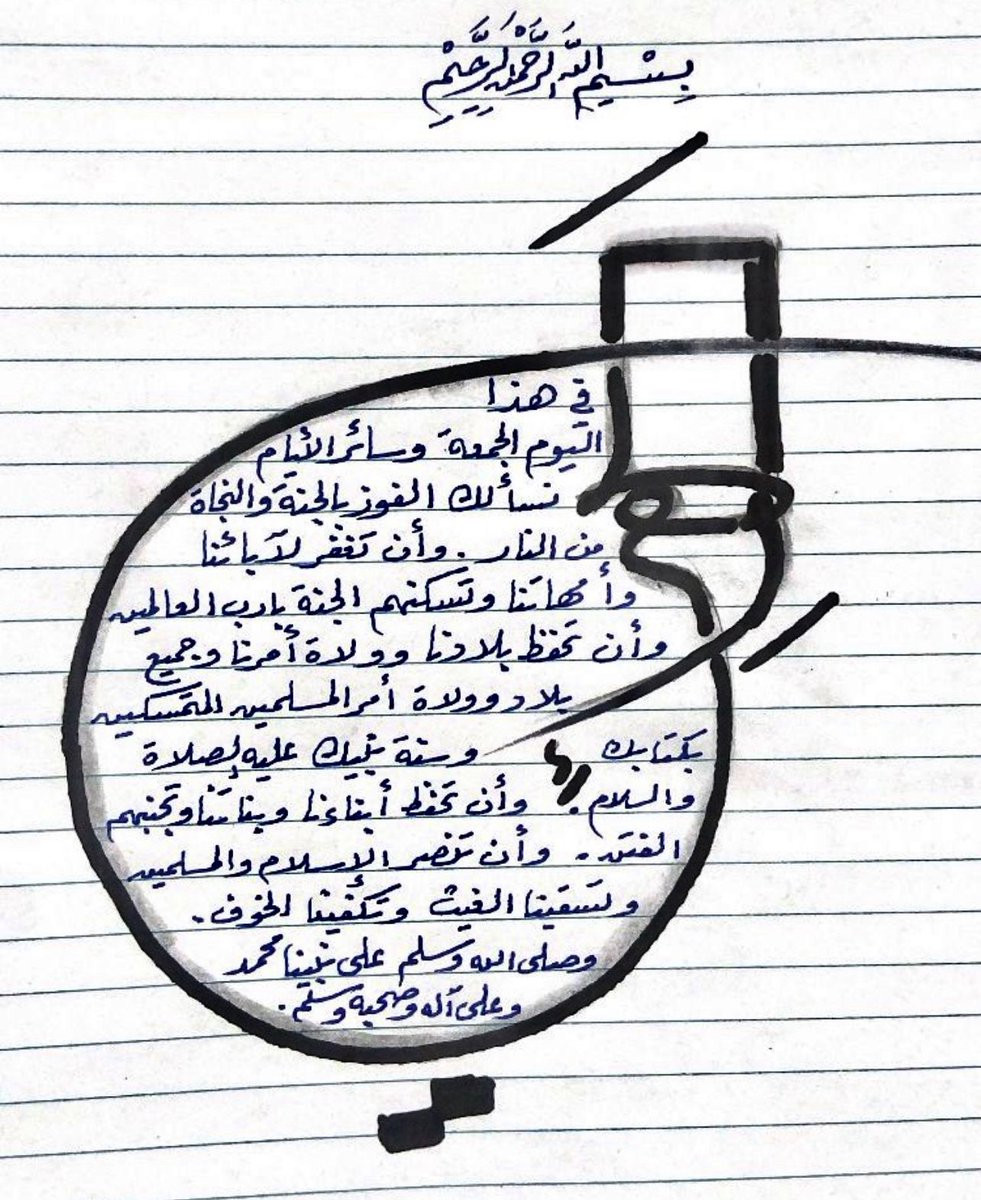 بِسْمِ اللَّهِ الرَّحْمَنِ الرَّحِيمِ
في هذا
اليوم الجمعة وسائر الأيام
نسألك الفوز بالجنة والنجاة
من النار. وأن تغفر لآبائنا
وأمهاتنا وتسكنهم الجنة يارب العالمين
وأن تحفظ بلادنا وولاة أمرنا وجميع
بلاد وولاة أمر المسلمين المتمسكين
بكتابك وسنة نبيك عليه الصلاة
والسلام. وأن تحفظ أبناءنا وبناتنا وتجنبهم
الفتن. وأن تنصر الإسلام والمسلمين
وتسقينا الغيث وتكفينا الخوف.
وصلى الله وسلم على نبينا محمد
وعلى آله وصحبه وسلم.